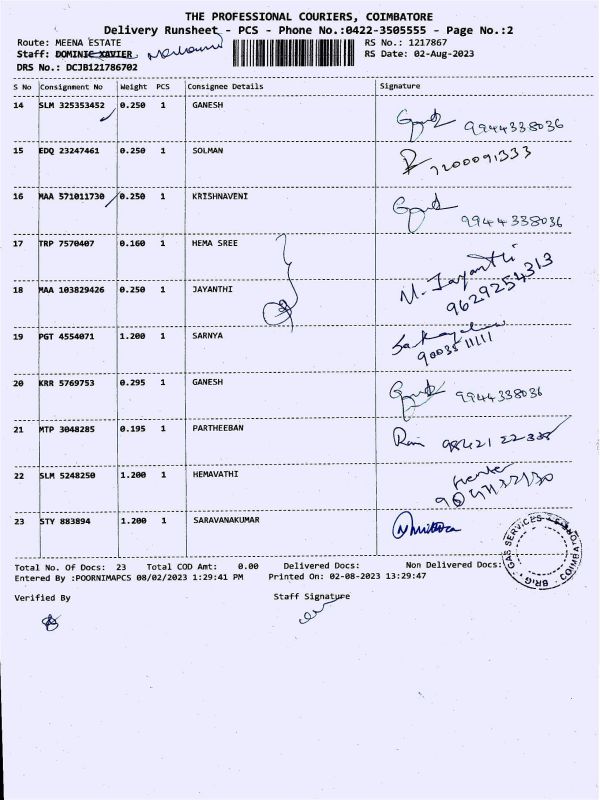 THE PROFESSIONAL COURIERS, COIMBATORE
Delivery Runsheet - PCS - Phone No.:0422-3505555 - Page No.:2
Route: MEENA ESTATE RS No.: 1217867
Staff: DOMINIC XAVIER RS Date: 02-Aug-2023
DRS No.: DCJB121786702
S No Consignment No Weight PCS Consignee Details Signature
14 SLM 325353452 0.250 1 GANESH 9944338036
15 EDQ 23247461 0.250 1 SOLMAN 7200091333
16 MAA 571011730 0.250 1 KRISHNAVENI 9944338036
17 TRP 7570407 0.160 1 HEMA SREE
18 MAA 103829426 0.250 1 JAYANTHI M. Jayanthi
9629254313
19 PGT 4554071 1.200 1 SARNYA
9003511111
20 KRR 5769753 0.295 1 GANESH 9944338036
21 MTP 3048285 0.195 1 PARTHEEBAN
22 SLM 5248250 1.200 1 HEMAVATHI
23 STY 883894 1.200 1 SARAVANAKUMAR
BRIG GAS SERVICES COIMBATORE
Total No. Of Docs: 23 Total COD Amt: 0.00 Delivered Docs: Non Delivered Docs:
Entered By :POORNIMAPCS 08/02/2023 1:29:41 PM Printed On: 02-08-2023 13:29:47
Verified By Staff Signature